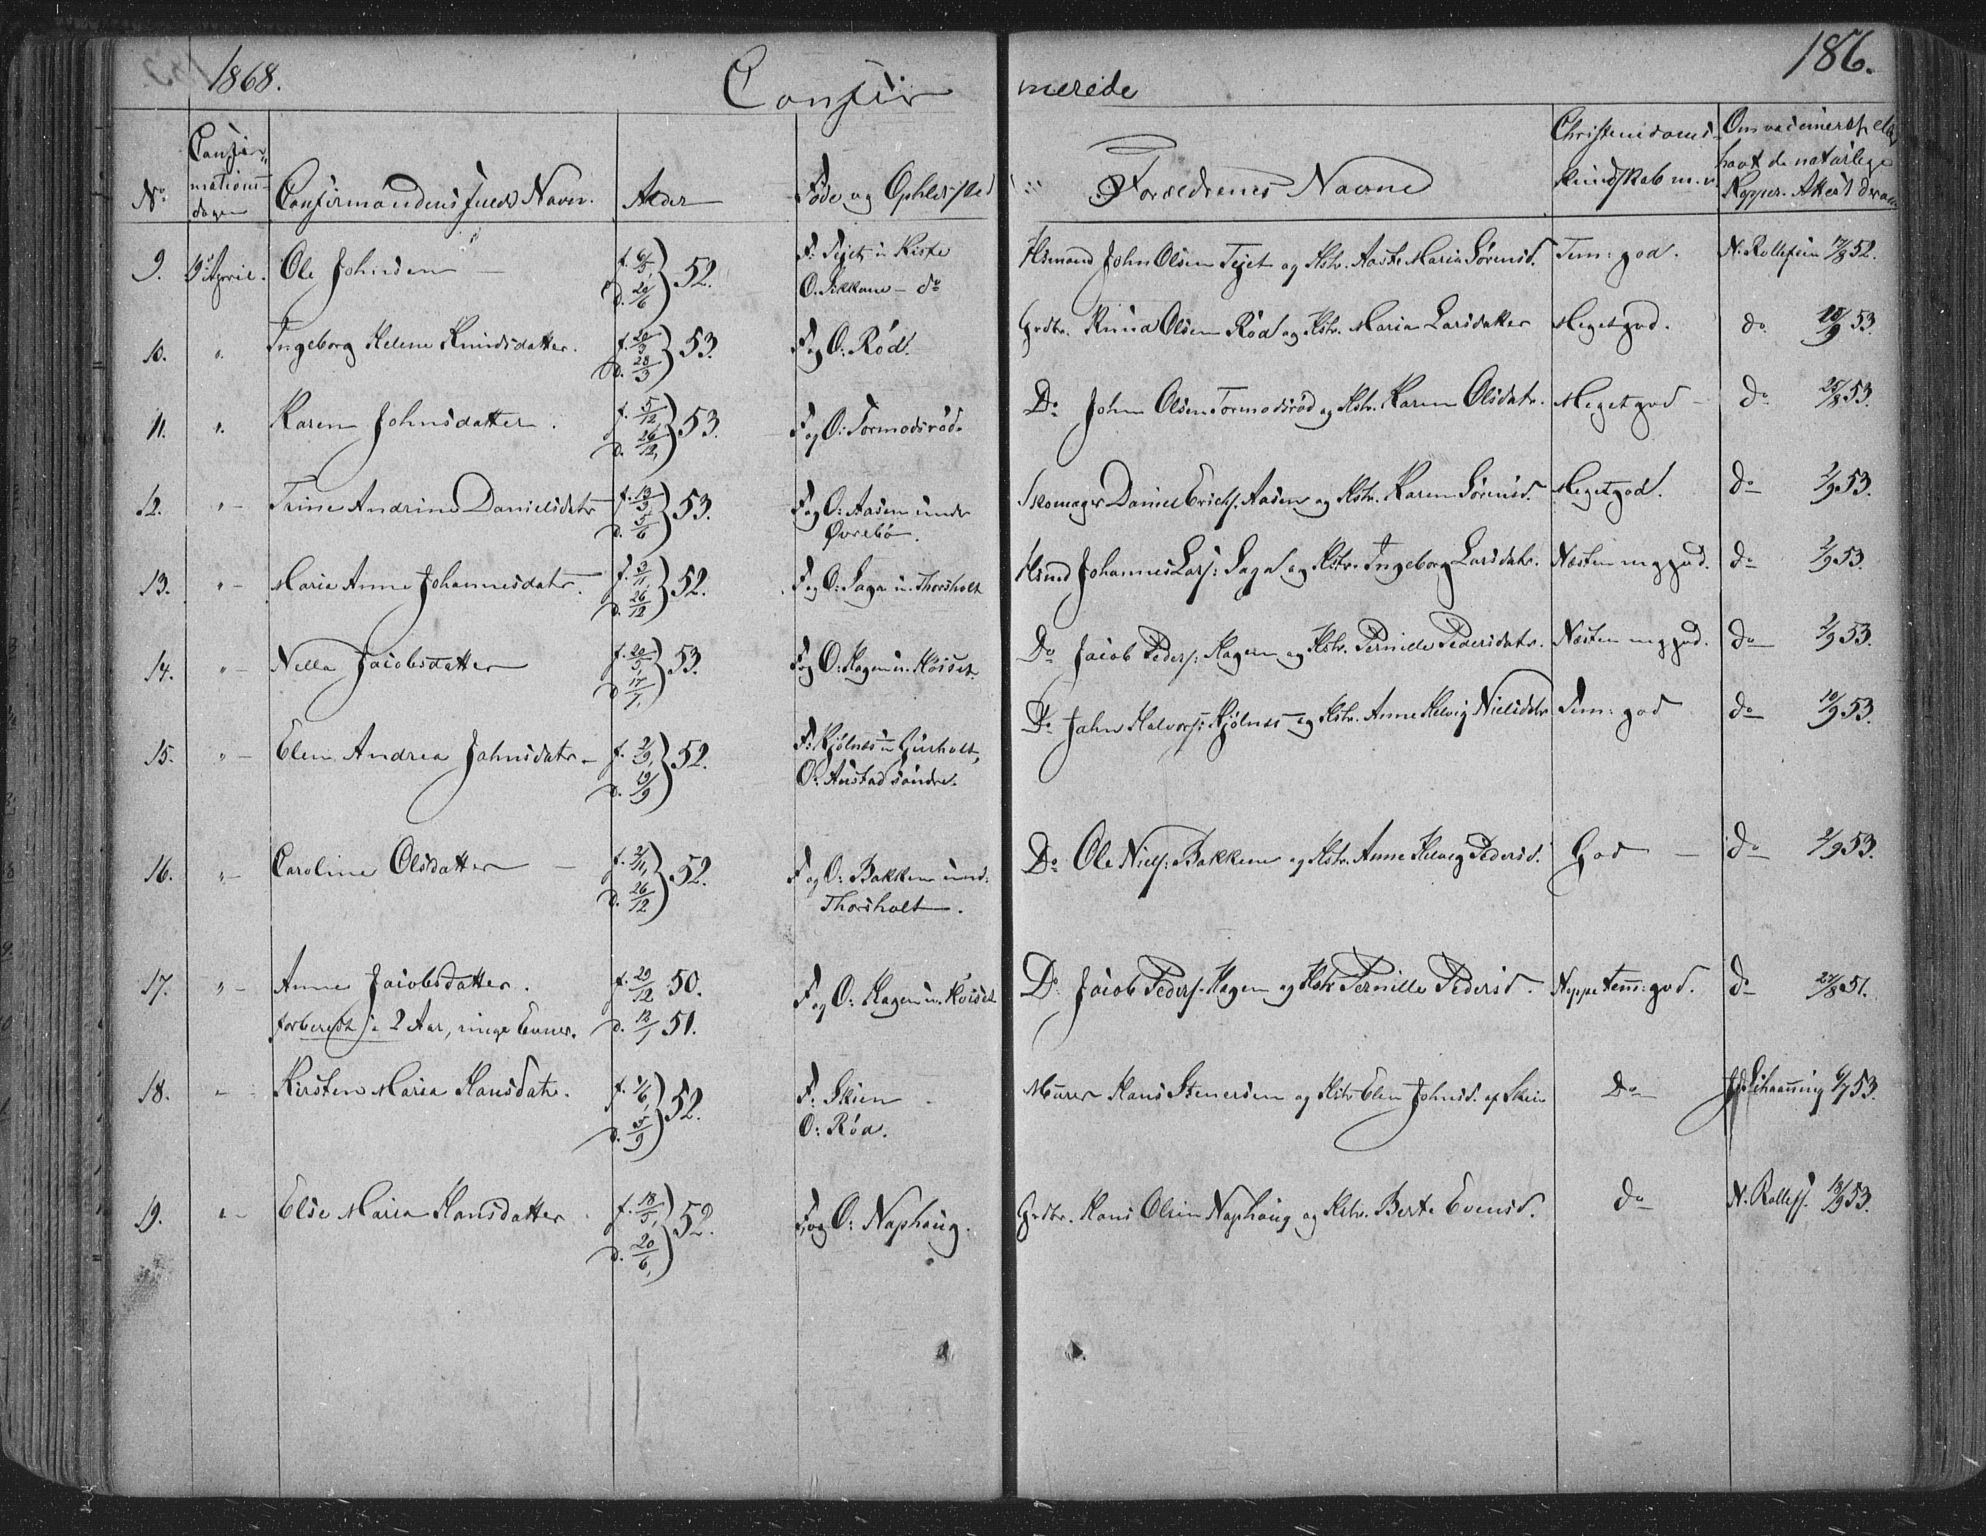 1868.
186.
Confir
merede
No.
Confir-
mations-
dagen
Confirmandens fulde Navn.
Alder
Føde og Opholdssted
Forældrenes Navne
Christendoms-
kundskab m. v.
Om vaccineret eller
havt de naturlige
Kopper. Attest derom
9. April. Ole Johnsen f. 6/5, d. 20/6 } 52. F: Tejet u. Kiste
O. do
Hsmand John Olsen Tejet og Hstr. Aaste Maria Sørensd. Tem: god. N. Rollefsen 17/8 52.
10. " Ingeborg Helene Knudsdatter. f. 20/3 d. 28/3 } 53. F og O: Rød.
Grdbr. Knud Olsen Rød og Hstr. Maria Larsdatter Meget god. do 18/9 53.
11. " Karen Johnsdatter. f. 5/12 d. 26/12 } 53. F og O: Tormodsrød.
Do John Olsen Tormodsrød og Hstr. Karen Olsdatr. Meget god - do 28/8 53.
12. " - Trine Andrine Danielsdatr f. 13/3 d. 5/6 } 53. F og O: Aasen under
Øvrebø.
Skomager Daniel Erichs. Aasen og Hstr. Karen Sørensd. Meget god. do 2/9 53.
13. " - Maria Anne Johannesdatr. f. 3/11, d. 26/12 } 52. F og O: Saga u. Thorsholt
Hsmd Johannes Lars: Saga og Hstr. Ingeborg Larsdatr. Næsten meg god. do 2/9 53.
14. " - Nella Jacobsdatter f. 20/5, d. 17/7. } 53. F og O: Hagen u. Høiset.
Do Jacob Peders: Hagen og Hstr. Pernille Pedersdatr. Næsten meg god. do 2/9 53.
15. " - Elen Andrea Johnsdatr. - f. 2/9, d. 19/9 } 52. F: Kjølnes u. Gursholt,
O: Austad søndre.
Do John Halvors: Kjølnes og Hstr. Anne Helvig Nielsdatr Tem: god do 10/9 53.
16. " - Caroline Olsdatter - f. 2/11, d. 26/12 } 52. F og O: Bakken und:
Thorsholt.
Do Ole Niels: Bakken og Hstr. Anne Helvig Pedersd. God - do 2/9 53.
17. " - Anne Jacobsdatter. f. 29/12 50. F og O: Hagen u. Høiset
forberedt i 2 Aar, ringe Evner. d. 12/1 51.
Do Jacob Peders: Hagen og Hstr Pernille Pedersd. Neppe tem: god. do 28/8 51.
18. " Kirsten Maria Hansdatr. f. 1/6, d. 5/9 } 52. F: Skien
O: Rød.
Murer Hans Stenersen og Hstr Elen Johnsd. af Skien Do Schanning 6/7 53.
19. " - Else Maria Hansdatter f. 18/5, d. 20/6, } 52. F. og O: Naphaug.
Grdbr. Hans Olsen Naphaug og Hstr. Berte Evensd. do N. Rollefs. 18/9 53.